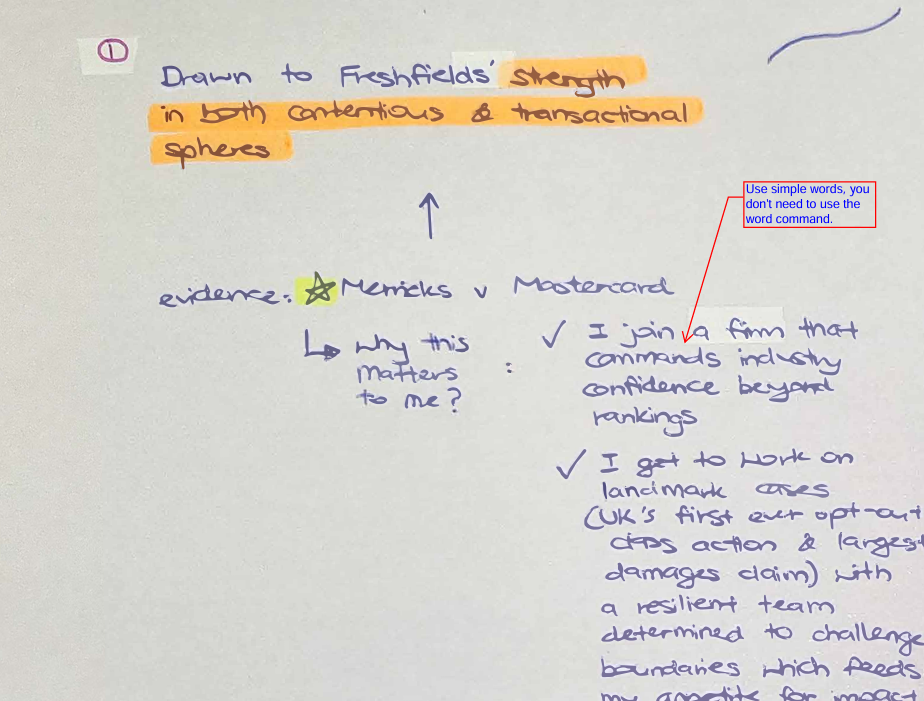 1
Drawn to Freshfields' strength
in both contentious & transactional
spheres
Use simple words, you
don't need to use the
word command.
evidence: ☆ Merricks v Mastercard
↳ why this
matters
to me?
:
✓ I join a firm that
commands industry
confidence beyond
rankings
✓ I get to work on
landmark cases
(UK's first ever opt-out
class action & largest
damages claim) with
a resilient team
determined to challenge
boundaries which feeds
my appetite for impact